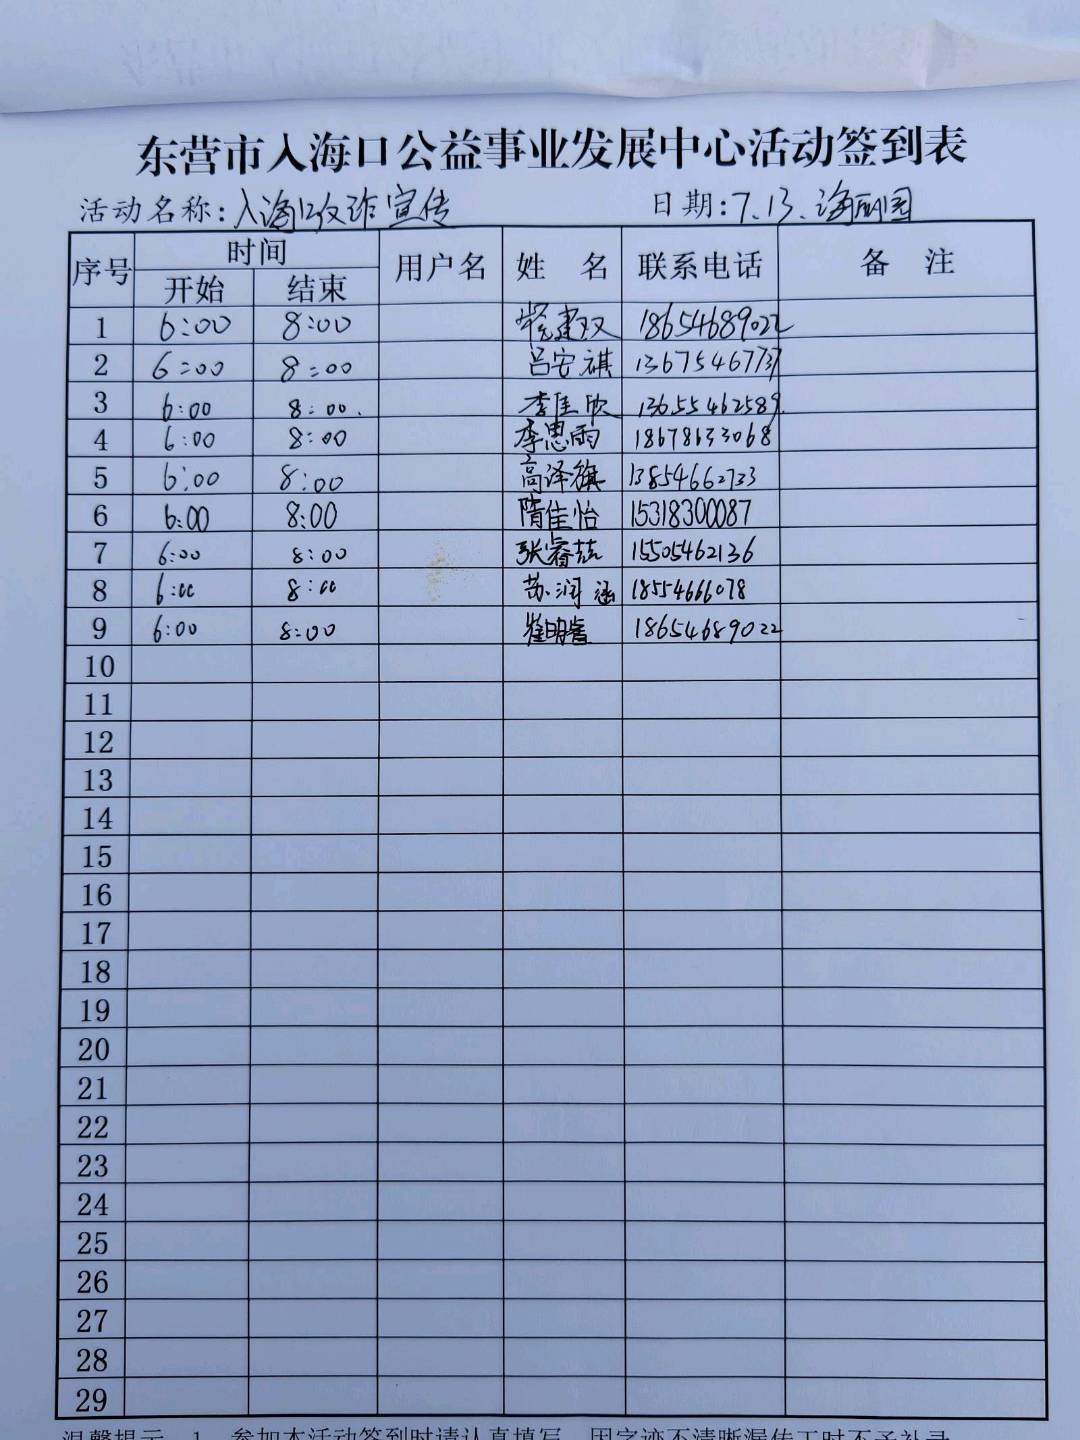 东营市入海口公益事业发展中心活动签到表
活动名称:入海口反诈宣传 日期:7.13.海丽园
序号 时间 用户名 姓 名 联系电话 备 注
开始 结束
1 6:00 8:00 建双 18654689022
2 6:00 8:00 吕安祺 13675467737
3 6:00 8:00. 李佳欣 13655462589.
4 6:00 8:00 李思雨 18678633068
5 6:00 8:00 高泽旗 13854662733
6 6:00 8:00 隋佳怡 15318300087
7 6:00 8:00 张睿喆 15505462136
8 6:00 8:00 苏润涵 18554666078
9 6:00 8:00 崔明睿 18654689022
10
11
12
13
14
15
16
17
18
19
20
21
22
23
24
25
26
27
28
29
温馨提示 1、参加本活动签到时请认真填写，因字迹不清晰漏传工时不予补录